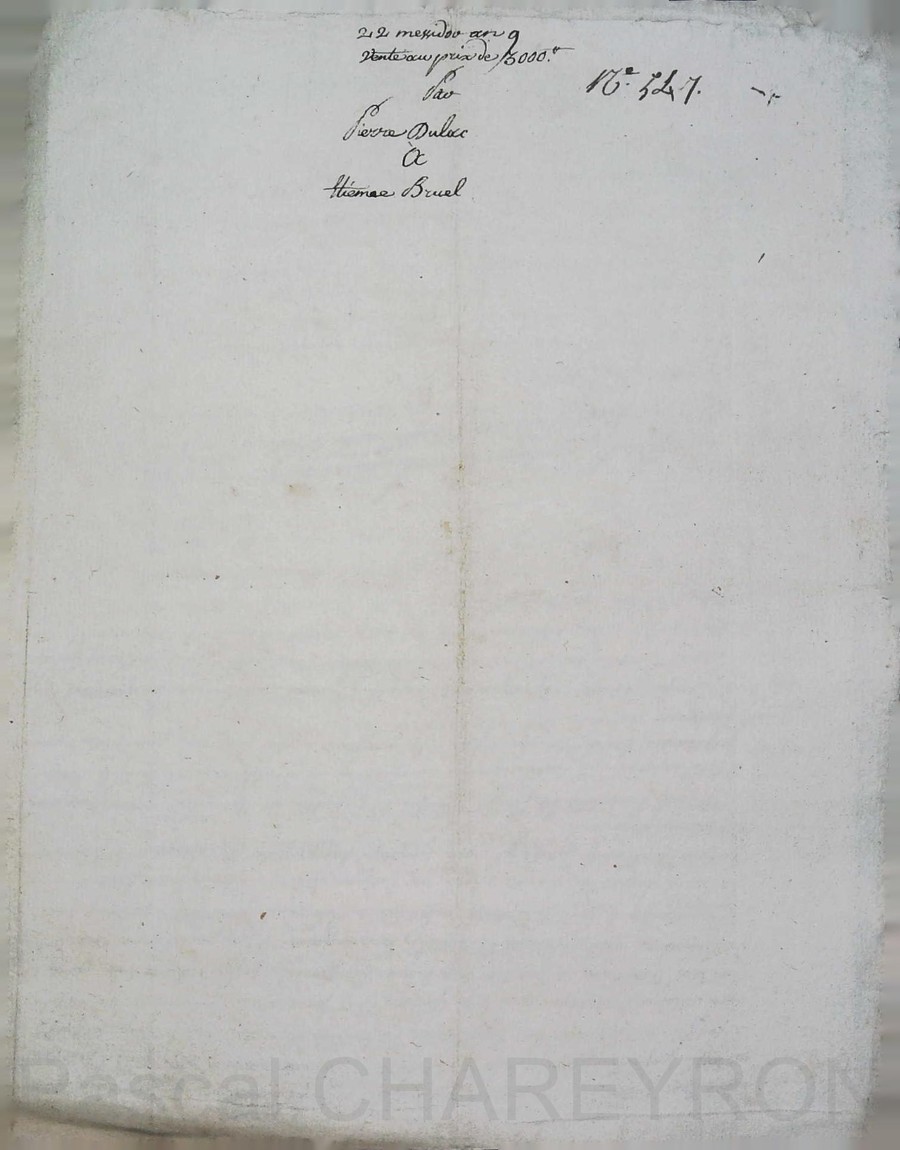 22 messidor an 9
Vente au prix de 3000.#
Par
N.° 547.
Pierre Dulac
À
Etienne Bruel
Pascal CHAREYRON